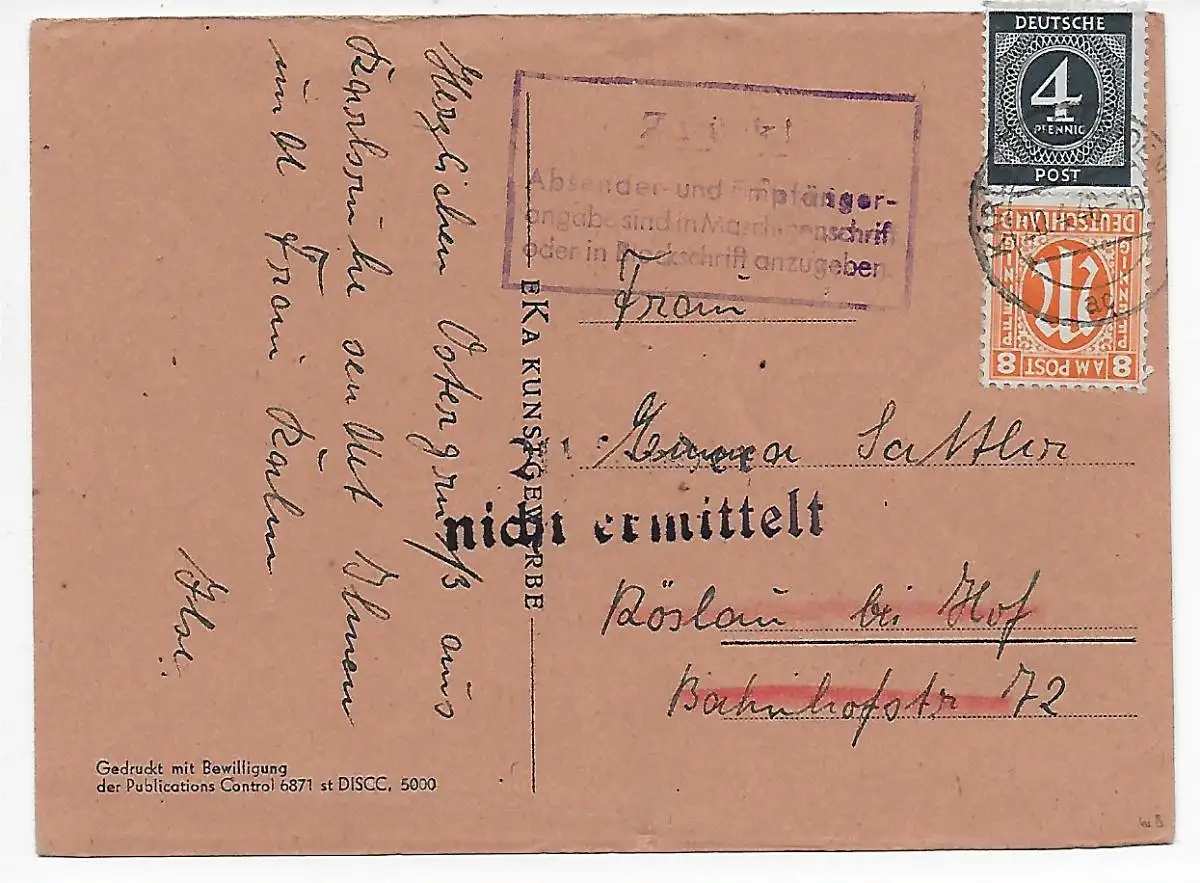 Herzlichen Ostergruß aus
Karlsruhe sendet Ihnen
und Frau Kuhn
Ilse.
Gedruckt mit Bewilligung
der Publications Control 6871 st DISCC. 5000
EKA KUNSTGEWERBE
Absender- und Empfänger-
angabe sind in Maschinenschrift
oder in Blockschrift anzugeben.
DEUTSCHE
4
PFENNIG
POST
DEUTSCHLAND
PFENNIG
8 AM POST 8
ac
Frau
Sattler
nicht ermittelt
Röslau bei Hof
Bahnhofstr 72